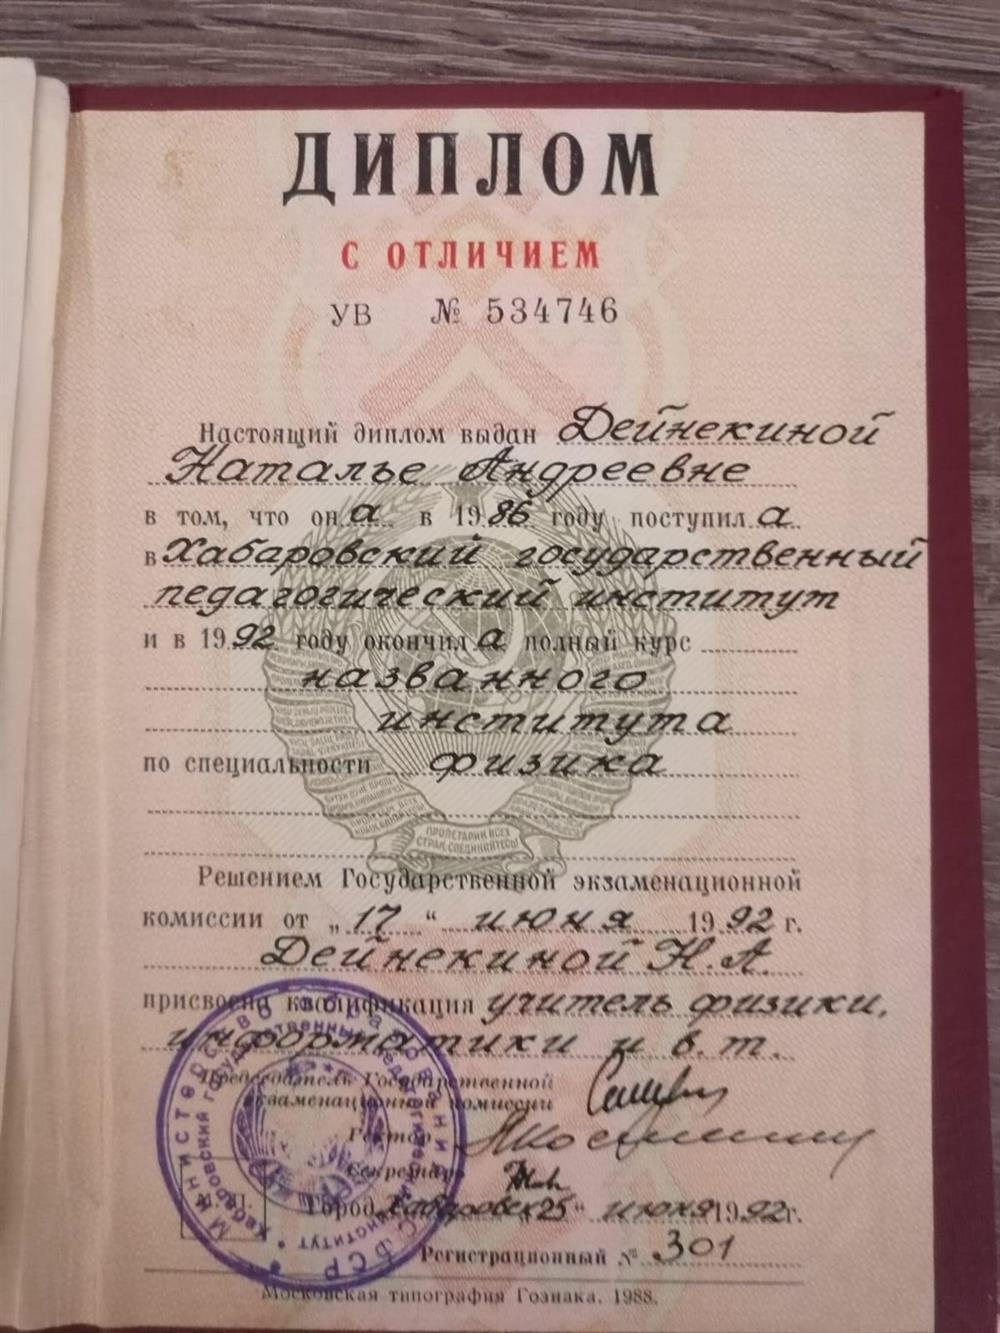 ДИПЛОМ
С ОТЛИЧИЕМ
УВ № 534746
Настоящий диплом выдан Дейнекиной
Наталье Андреевне
в том, что она в 1986 году поступила
в Хабаровский государственный
педагогический институт
и в 1992 году окончила полный курс
названного
института
по специальности физика
ПРОЛЕТАРИИ ВСЕХ
СТРАН, СОЕДИНЯЙТЕСЬ!
Решением Государственной экзаменационной
комиссии от „17“ июня 1992 г.
Дейнекиной Н.А.
присвоена квалификация учитель физики,
информатики и в.т.
Председатель Государственной
экзаменационной комиссии
Ректор
Секретарь
М.П.
Город Хабаровск „25“ июня 1992 г.
Регистрационный № 301
Московская типография Гознака. 1988.